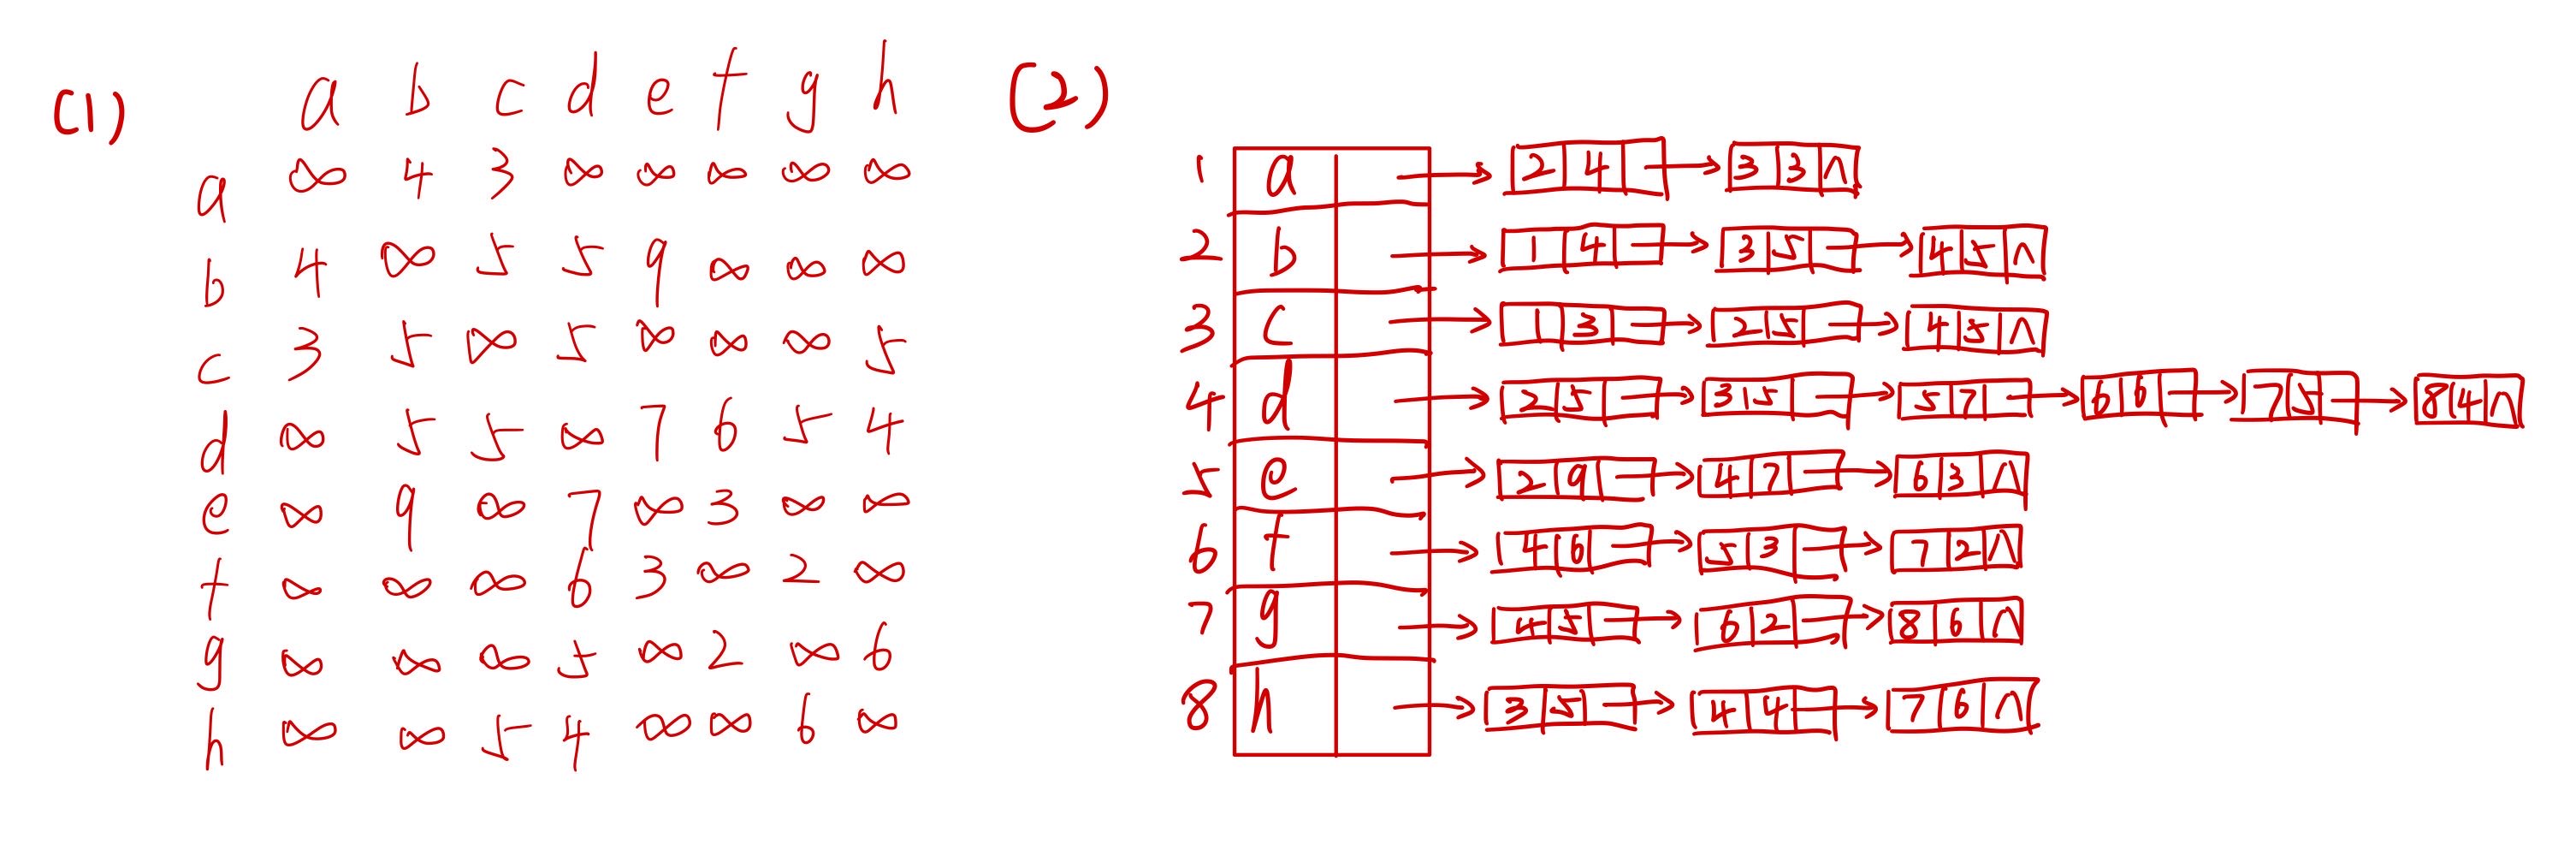 (1)
a b c d e f g h
a ∞ 4 3 ∞ ∞ ∞ ∞ ∞
b 4 ∞ 5 5 9 ∞ ∞ ∞
c 3 5 ∞ 5 ∞ ∞ ∞ 5
d ∞ 5 5 ∞ 7 6 5 4
e ∞ 9 ∞ 7 ∞ 3 ∞ ∞
f ∞ ∞ ∞ 6 3 ∞ 2 ∞
g ∞ ∞ ∞ 5 ∞ 2 ∞ 6
h ∞ ∞ 5 4 ∞ ∞ 6 ∞
(2)
1 a → 2 4 → 3 3 ∧
2 b → 1 4 → 3 5 → 4 5 ∧
3 c → 1 3 → 2 5 → 4 5 ∧
4 d → 2 5 → 3 5 → 5 7 → 6 6 → 7 5 → 8 4 ∧
5 e → 2 9 → 4 7 → 6 3 ∧
6 f → 4 6 → 5 3 → 7 2 ∧
7 g → 4 5 → 6 2 → 8 6 ∧
8 h → 3 5 → 4 4 → 7 6 ∧